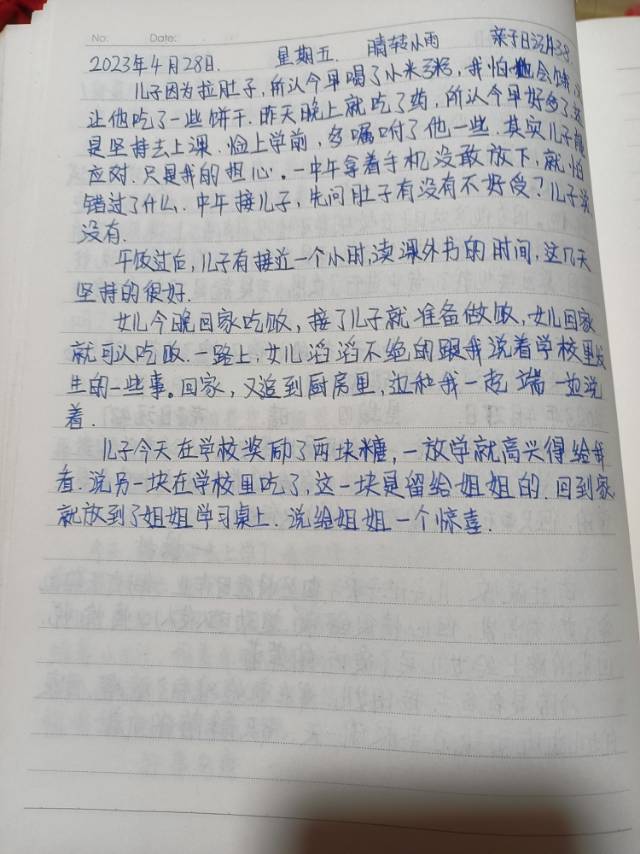 No. Date:
2023年4月28日. 星期五. 晴转小雨 亲子日记438.
儿子因为拉肚子,所以今早喝了小米粥,我怕他会饿,
让他吃了一些饼干.昨天晚上就吃了药,所以今早好多了.
是坚持去上课.临上学前,多嘱咐了他一些.其实儿子能
应对.只是我的担心。一中午拿着手机没敢放下,就怕
错过了什么.中午接儿子,先问肚子有没有不好受?儿子说
没有.
午饭过后,儿子有接近一个小时,读课外书的时间,这几天
坚持的很好.
女儿今晚回家吃饭,接了儿子就准备做饭,女儿回家
就可以吃饭.一路上,女儿滔滔不绝的跟我说着学校里发
生的一些事。回家,又追到厨房里,边和我一起端一边说
着.
儿子今天在学校奖励了两块糖,一放学就高兴得给我
看.说另一块在学校里吃了,这一块是留给姐姐的.回到家,
就放到了姐姐学习桌上.说给姐姐一个惊喜.